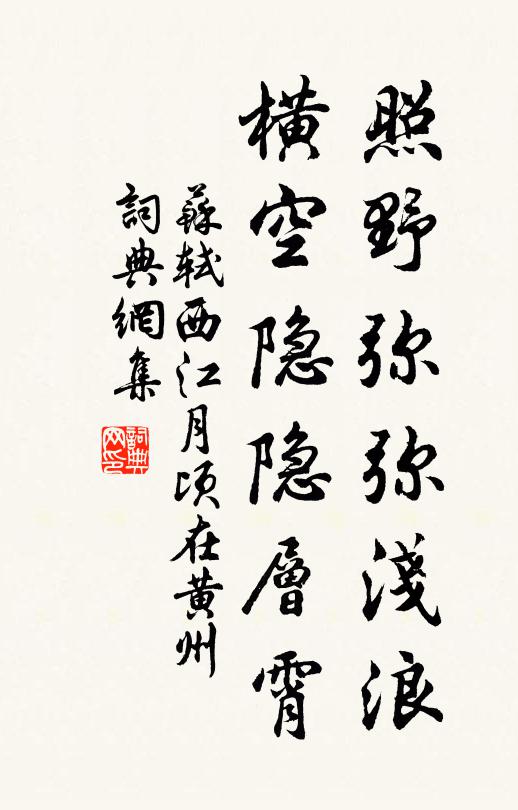 照野弥弥淺浪
橫空隐隐層霄
蘇軾西江月頃在黄州
詞典網集
詞典网印